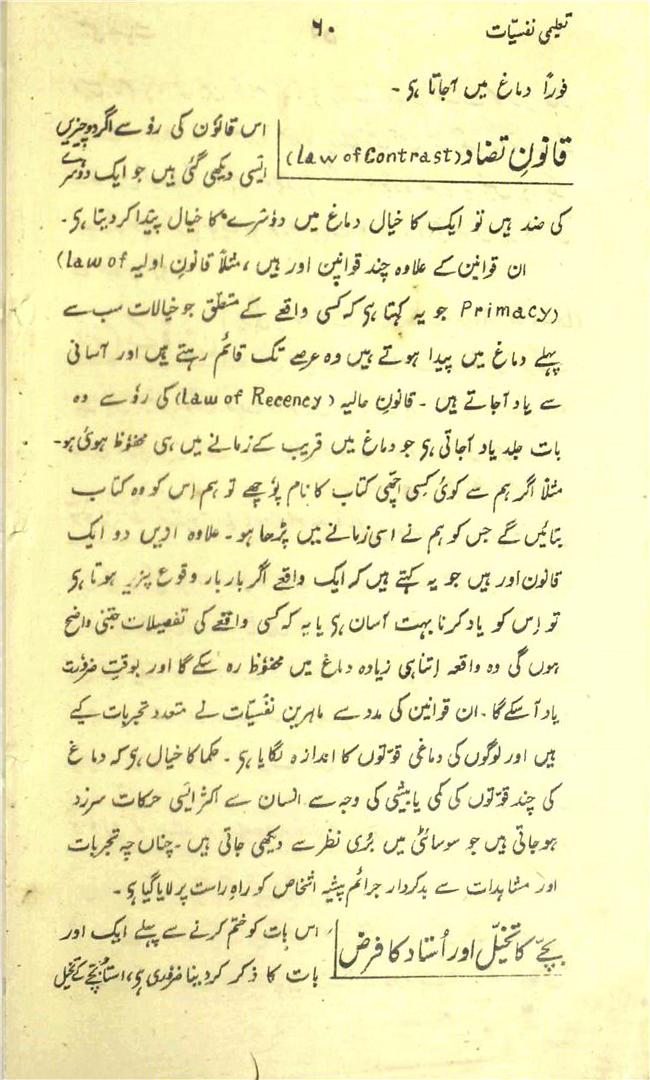 تعلیمی نفسیّات
۶۰
فوراً دماغ میں آجاتا ہی۔
قانونِ تضاد (Law of Contrast)
اس قانوٗن کی روٗ سے اگر دو چیزیں
ایسی دیکھی گئی ہیں جو ایک دوٗسرے
کی ضد ہیں تو ایک کا خیال دماغ میں دوٗسرے کا خیال پیدا کر دیتا ہی۔
ان قوانین کے علاوہ چند قوانین اور ہیں، مثلاً قانونِ اولیہ (law of
Primacy) جو یہ کہتا ہی کہ کسی واقعے کے متعلّق جو خیالات سب سے
پہلے دماغ میں پیدا ہوتے ہیں وہ عرصے تک قائم رہتے ہیں اور آسانی
سے یاد آجاتے ہیں۔ قانونِ حالیہ (Law of Recency) کی روٗ سے وہ
بات جلد یاد آجاتی ہی جو دماغ میں قریب کے زمانے میں ہی محفوٗظ ہوئی ہو۔
مثلاً اگر ہم سے کوئی کِسی اچّھی کتاب کا نام پوٗچھے تو ہم اِس کو وہ کتاب
بتائیں گے جس کو ہم نے اسی زمانے میں پڑھا ہو۔ علاوہ ازیں دو ایک
قانون اور ہیں جو یہ کہتے ہیں کہ ایک واقعے اگر بار بار وقوع پزیر ہوتا ہی
تو اِس کو یاد کرنا بہت آسان ہی یا یہ کہ کسی واقعے کی تفصیلات جتنی واضح
ہوں گی وہ واقعہ اِتنا ہی زیادہ دماغ میں محفوٗظ رہ سکے گا اور بوقتِ ضروٗرت
یاد آسکے گا۔ ان قوانین کی مدد سے ماہرینِ نفسیّات نے متعدد تجربات کیے
ہیں اور لوگوں کی دماغی قوّتوں کا اندازہ لگایا ہی۔ حکما کا خیال ہی کہ دماغ
کی چند قوّتوں کی کمی یا بیشی کی وجہ سے انسان سے اکثر ایسی حرکات سرزد
ہو جاتی ہیں جو سوسائٹی میں بُری نظر سے دیکھی جاتی ہیں۔ چناں چہ تجربات
اور مشاہدات سے بدکردار جرائم پیشہ اشخاص کو راہِ راست پر لایا گیا ہی۔
بچّے کا تخیّل اور اُستاد کا فرض
اس بات کو ختم کرنے سے پہلے ایک اور
بات کا ذکر کر دینا ضروٗری ہی، استاد بچّے کے تخیّل